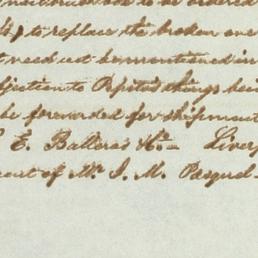 to be ordered
to replace the broken one
need not be mentioned in
to Pepitos things bei
be forwarded for shipment
E. Balleras & Co. Liver
of Mr. J. M. Pasqual